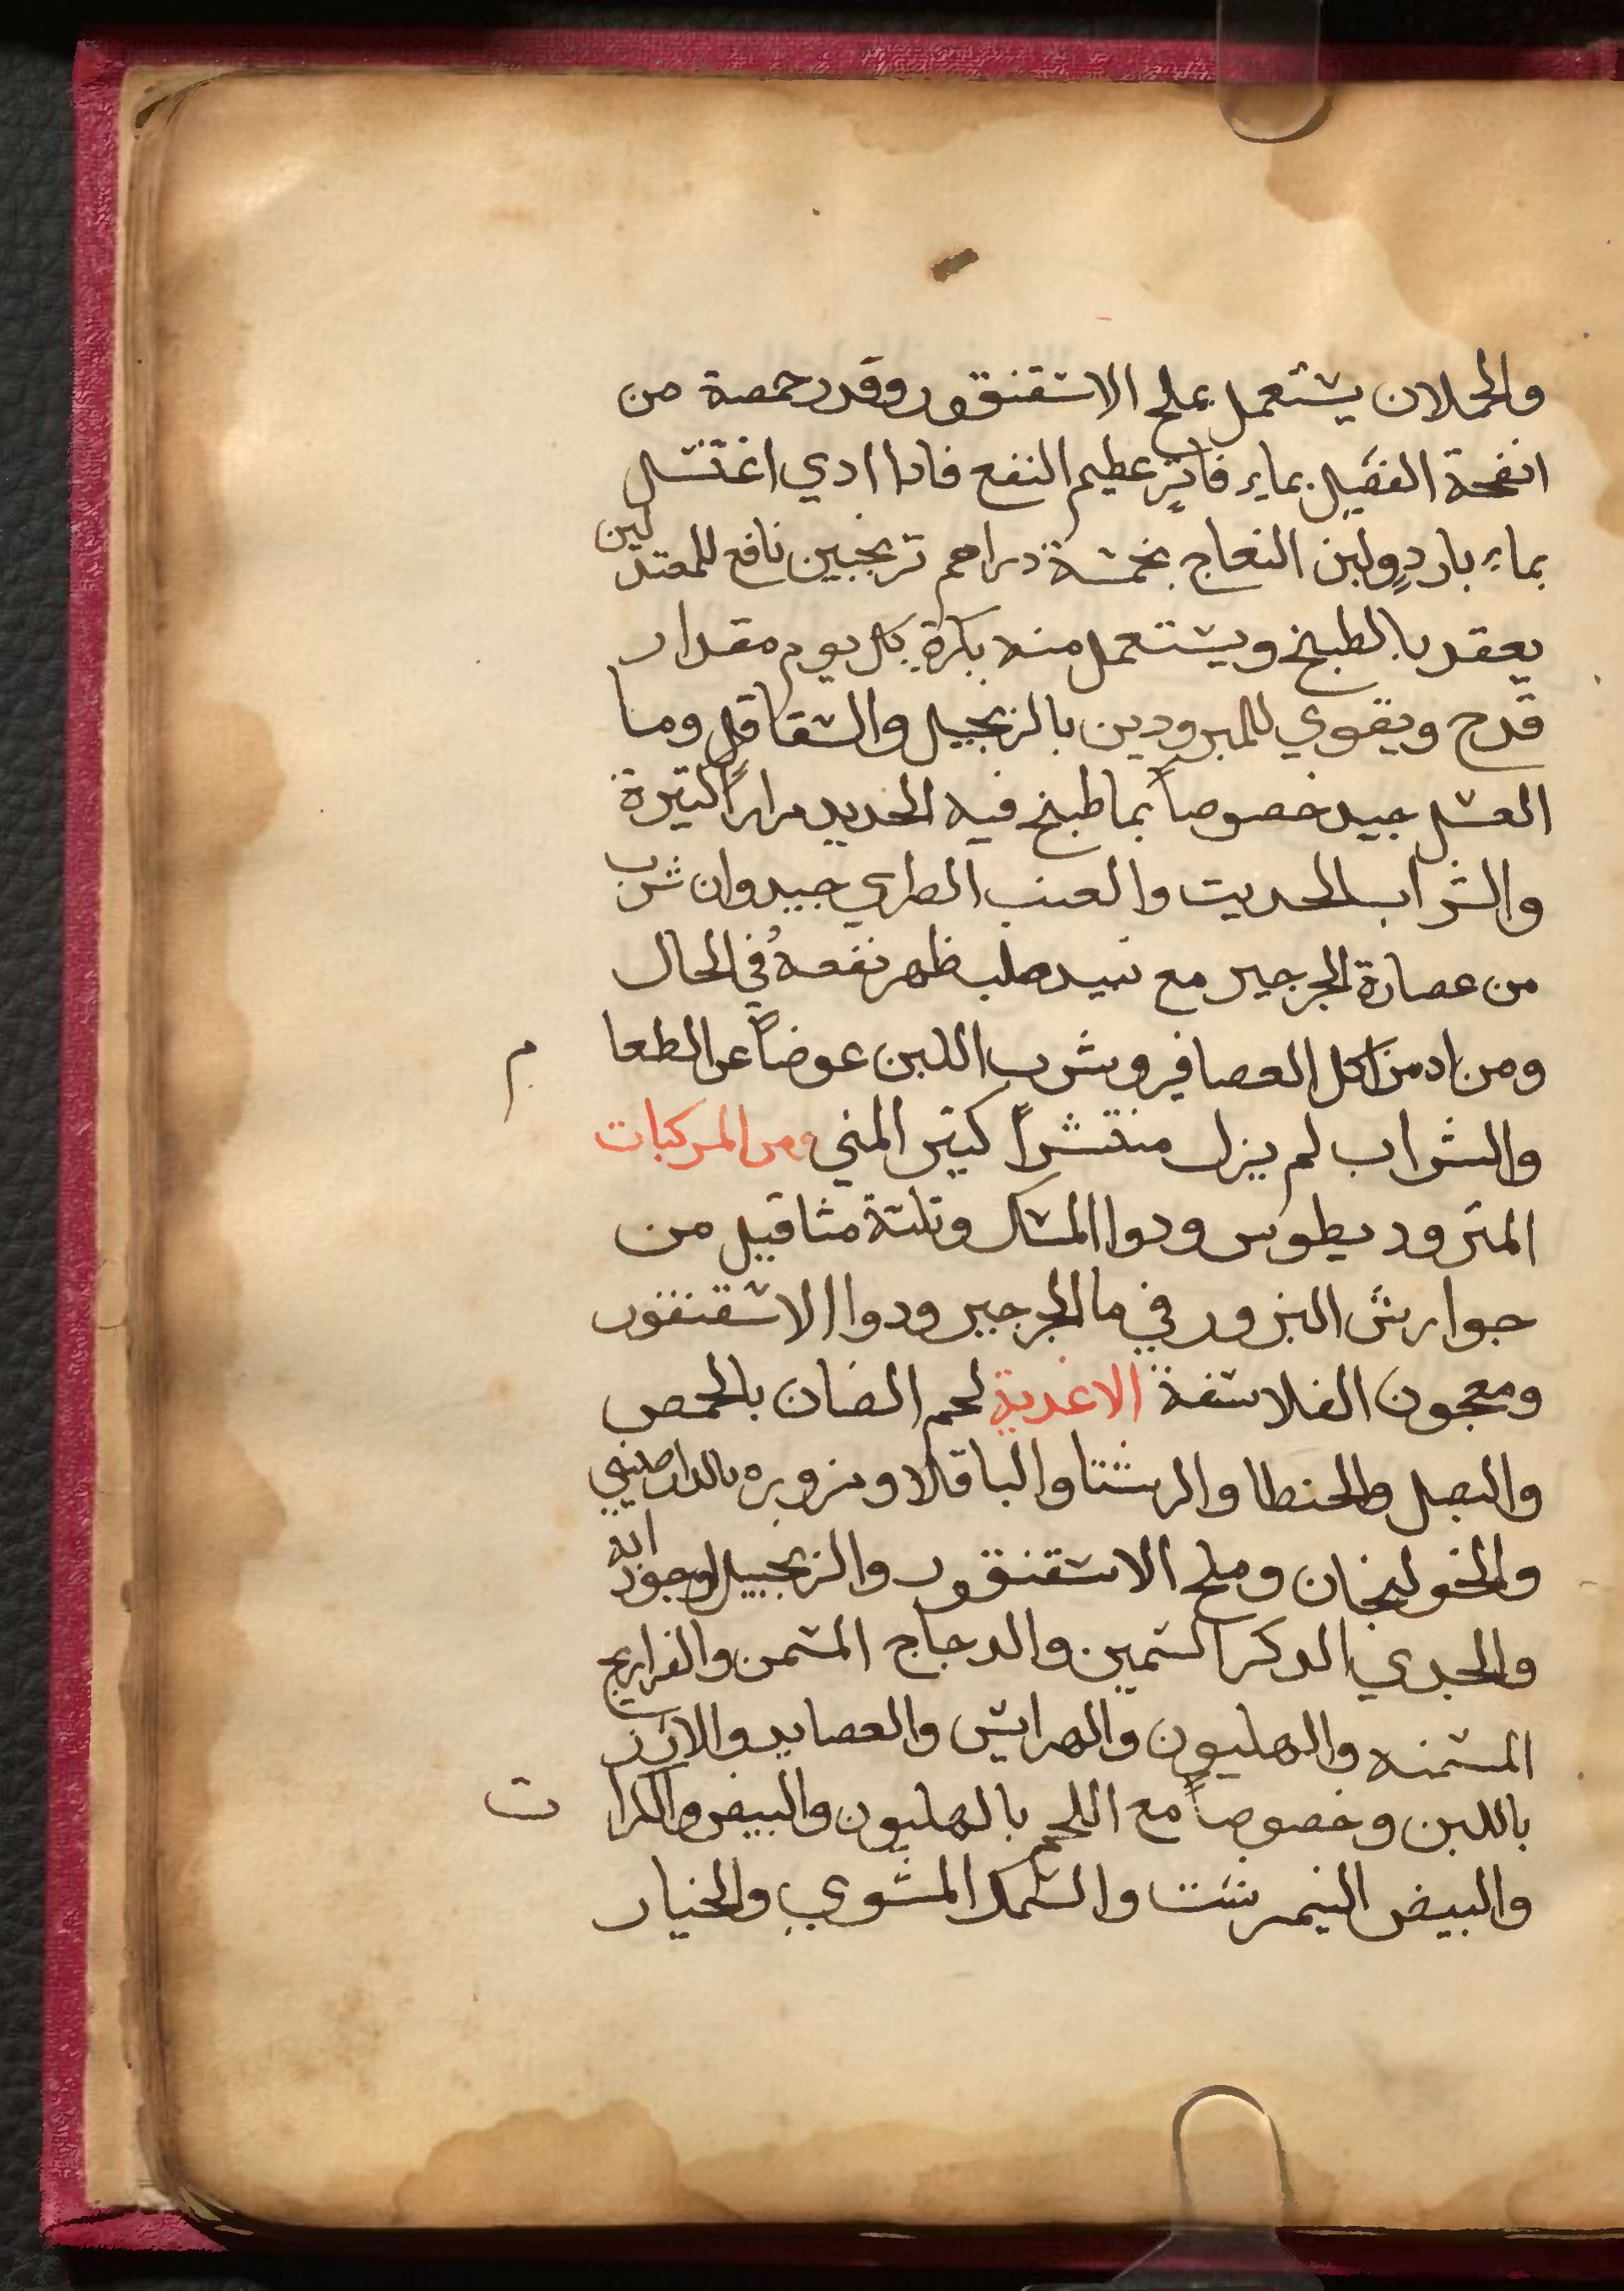 والحملان يستعمل بملح الاسقنقور وقدر حمصة من
انفحة الفصيل بماءٍ فاترٍ عظيم النفع فادا ادي اغتسل
بماءٍ باردٍ ولبن النعاج بخمسة دراهم ترنجبين نافع للمعتدلين
يعقد بالطبخ ويستعمل منه بكرة كل يوم مقدار
قدح ويقوي للمبرودين بالزنجبيل والشقاقل وما
العسل جيد خصوصاً بما طبخ فيه الحديد مراراً كتيرة
والشراب الحديت والعنب الطري جيد وان شرب
من عصارة الجرجير مع نبيد صلب ظهر نفعهُ في الحال
ومن ادمن اكل العصافير وشرب اللبن عوضاً عن الطعام
والشراب لم يزل منتشراً كتير المني ومن المركبات
المتروديطوس ودوا المسك وتلتة مثاقيل من
جوارش البزور في ما الجرجير ودوا الاسقنقور
ومعجون الفلاسفة الاغدية لحم الضان بالحمص
والبصل والحنطا والرشتا والباقلا وبزوره بالدارصيني
والخولنجان وملح الاسقنقور والزنجبيل وجودابه
والجدي الدكر السمين والدجاج المسمن والفراريج
المسمنه والهليون والهرايس والعصايد والارز
باللبن وخصوصاً مع اللحم بالهليون والبيض والكرات
والبيض النيمرشت والسمك المشوي والخيار